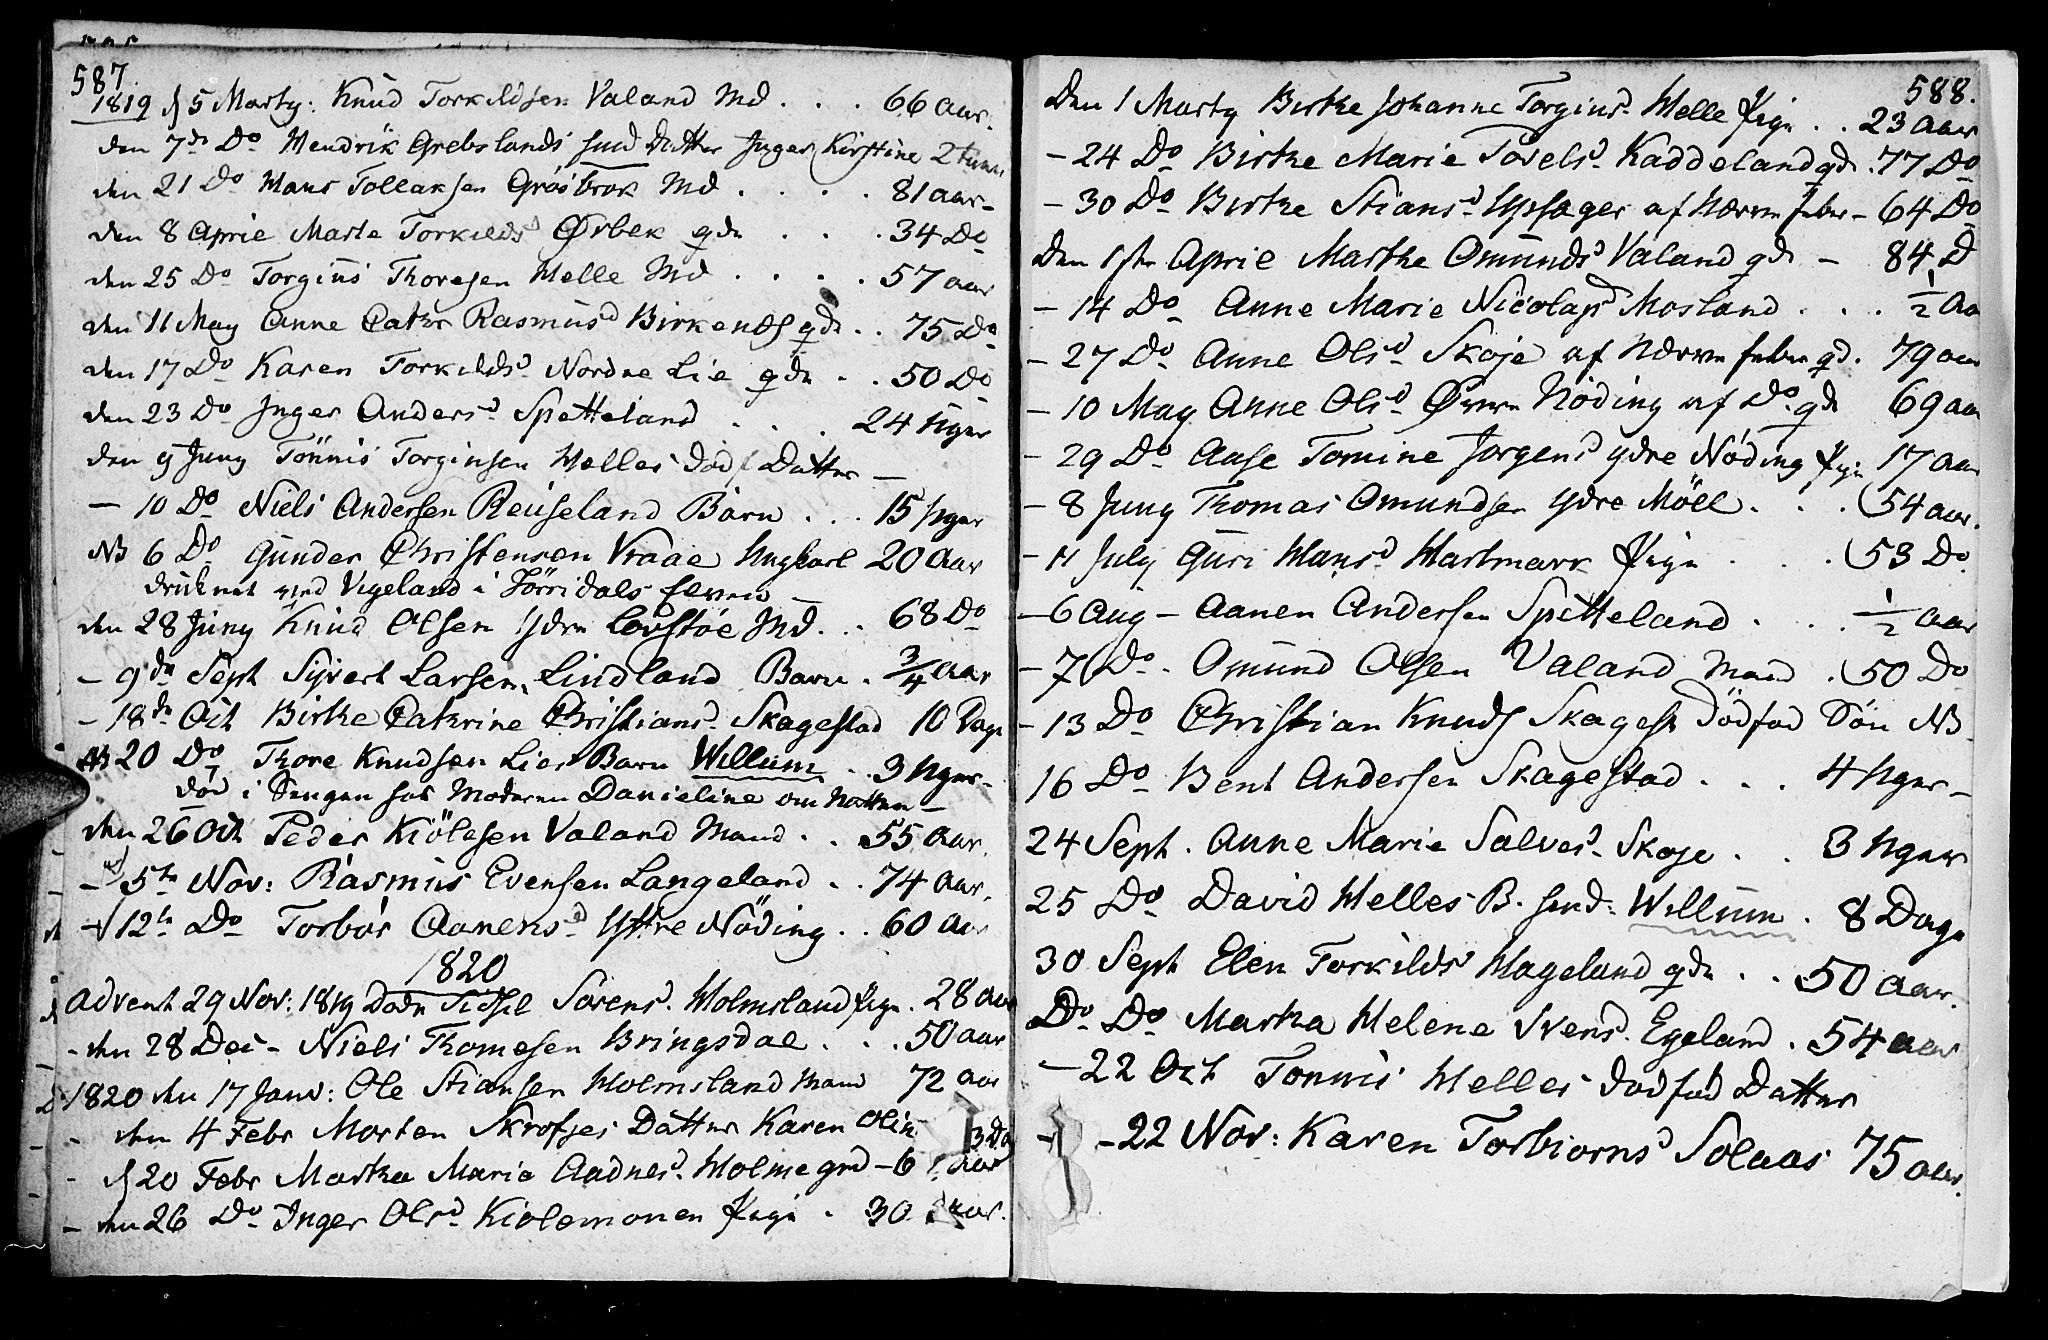 587.
1819 d 5 Marty: Knud Torkildsen Valand Md . . . 66 aar.
den 7de Do Hendrik Grebslands smd Datter Inger Kirstine 2 timer
den 21 Do Hans Tollaksen Grösbrok Md . . . . 81 aar -
den 8 Aprie Marte Torkilds.d Ørbek gde . . . 34 Do
den 25 Do Torgius Thoresen Helle Md . . . . 57 aar
den 11 May Anne Catrr Rasmus.d Birkenes gde . . 75 Do
den 17 Do Karen Torkilds.d Nordre Lie gde . . 50 Do
den 23 Do Inger Anders.d Spetteland . . . 24 Uger
den 9 Juny Tönnis Torginsen Helles död f Datter -
- 10 Do Niels Andersen Reuseland Barn . . . 15 Uger
NB 6 Do Gunder Christensen Vraae Ungkarl 20 Aar
druknet ved Vigeland i Törridals Elven -
den 28 Juny Knud Olsen Ydre Lovstöe Md. . . 68 Do
- 9de Sept Syvert Larsen Lindland Barn . 3/4 Aar
- 18de Oct Birthe Catrine Christians.d Skagestad 10 Dage
NB 20 Do Thore Knudsen Lies Barn Willum . . 3 Uger -
död i Sengen hos Moderen Danieline om Natten -
den 26 Oct Peder Kiölesen Valand Mand . . 55 Aar.
- 5te Nov: Rasmus Evensen Langeland . . 74 Aar.
- 12te Do Torbor Aanens.d Yttre Nöding . . 60 Aar
1820
Advent 29 Nov: 1819 Döde Sidsel Sörens.d Holmsland Pige . 28 Aar
- den 28 Dec - Niels Thomesen Bringsdal . . . 50 aar
1820 den 17 Janv: Ole Stiansen Holmsland Mand 72 aar
- den 4 Febr Morten Skrofses Datter Karen Olin 3 Da
- d 20 Febr Martha Marie Aadnes.d Holme gmd - 6 Aar
- den 26 Do Inger Ols.d Kiolemonen Pige . 30 Aar.
588.
Den 1 Marty Birthe Johanne Torgius.d Helle Pige . . 23 Aar
- 24 Do Birthe Marie Tovels.d Kaddeland gde . 77 Do
- 30 Do Birthe Stians.d Upsager af Nerven feber - 64 Do
Den 1ste Aprie Marthe Omunds.d Valand gde - 84 D
- 14 Do Anne Marie Nicolays.d Mosland . . . 1/2 Aa
- 27 Do Anne Ols.d Skoje af Nerven feber gd. 79 aar
- 10 May Anne Ols.d Øvre Nöding af Do gde 69 aar
- 29 Do Aase Tomine Jorgens.d ydre Nöding Pige 17 Aar
- 8 Juny Thomas Omundsen Ydre Möll . . . 54 aar.
- 11 July Guri Hans.d Hartmark Pige . . . 53 Do
- 6 Aug - Aanen Andersen Spetteland . . . 1/2 Aar
- 7 Do - Omund Olsen Valand Mand . 50 Do
- 13 Do Christian Knuds Skagest dödfød Sön NB
16 Do Bent Andersen Skagestad . . . 4 Uger -
24 Sept . Anne Marie Salves.d Skoje . . 3 Uger
25 Do David Helles B. smd: Willum . 8 Dage
30 Sept Elen Torkilds.d Hageland gde . . 50 Aar.
Do Do Martha Helene Svens.d Egeland . 54 aar
- 22 Oct Tonnis Helles dodfod Datter
- 22 Nov: Karen Torbiorns.d Solaas 75 aar.